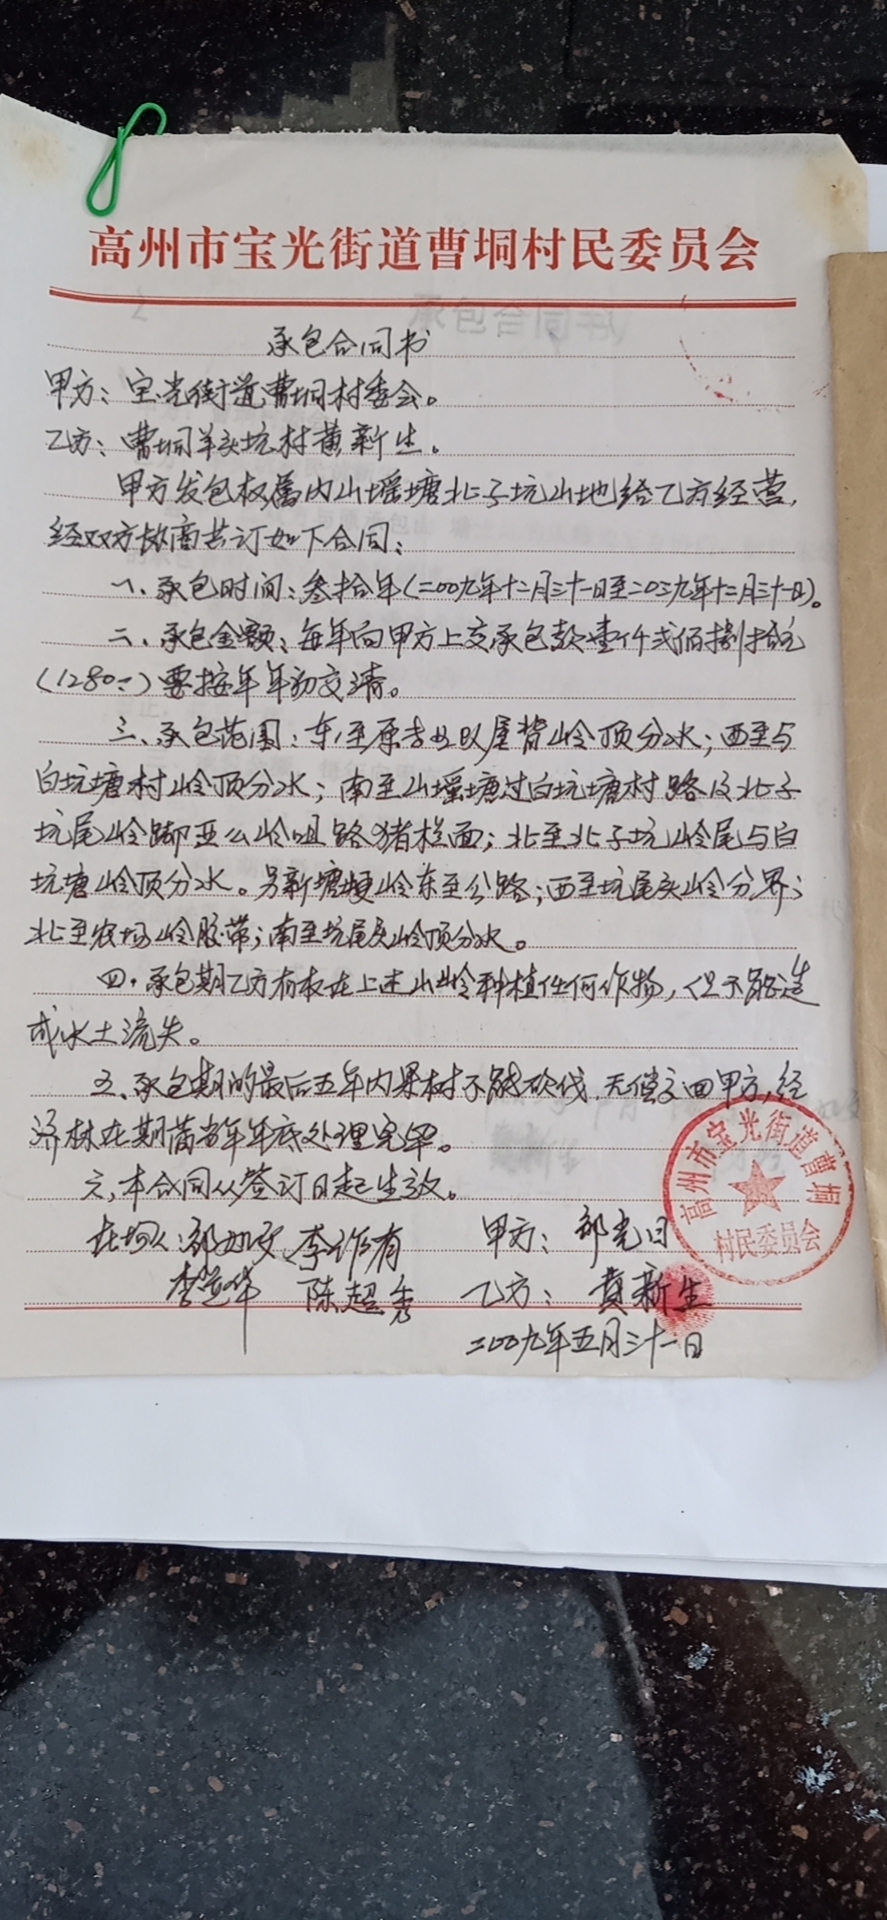 高州市宝光街道曹垌村民委员会
承包合同书
甲方：宝光街道曹垌村委会。
乙方：曹垌羊头坑村黄新生。
甲方发包权属内山瑶塘北子坑山地给乙方经营，
经双方协商共订如下合同：
一、承包时间：叁拾年（二00九年十二月三十一日至二0三九年十二月三十一日）。
二、承包金额：每年向甲方上交承包款壹仟贰佰捌拾元
（1280元）要按年年初交清。
三、承包范围：东至原书屋背岭顶分水；西至与
白坑塘村岭顶分水；南至山瑶塘过白坑塘村路及北子
坑尾岭脚亚公岭咀路猪栏面；北至北子坑岭尾与白
坑塘岭顶分水。另新塘埂岭东至公路；西至坑尾头岭分界；
北至农场岭胶带；南至坑尾头岭顶分水。
四、承包期乙方有权在上述山岭种植任何作物，但不能造
成水土流失。
五、承包期的最后五年内果树不能砍伐，无偿交回甲方，经
济林在期满当年年底处理完毕。
六、本合同从签订日起生效。
在场人：李作有 甲方：郭光日
陈超秀 乙方：黄新生
二00九年五月三十一日
高州市宝光街道曹垌
村民委员会